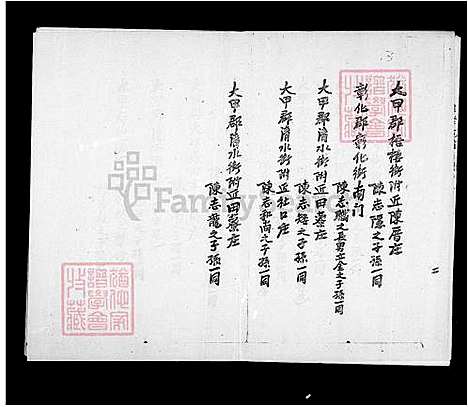 大甲郡梧棲街附近陳厝庄
陳志隱之子孫一同
彰化郡彰化街南门
陳志騰之長男立金之子孫一同
大甲郡清水街附近田寮庄
陳志矮之子孫一同
大甲郡清水街附近社口庄
陳志和尚之子孫一同
大甲郡清水街附近田寮庄
陳志龍之子孫一同
二